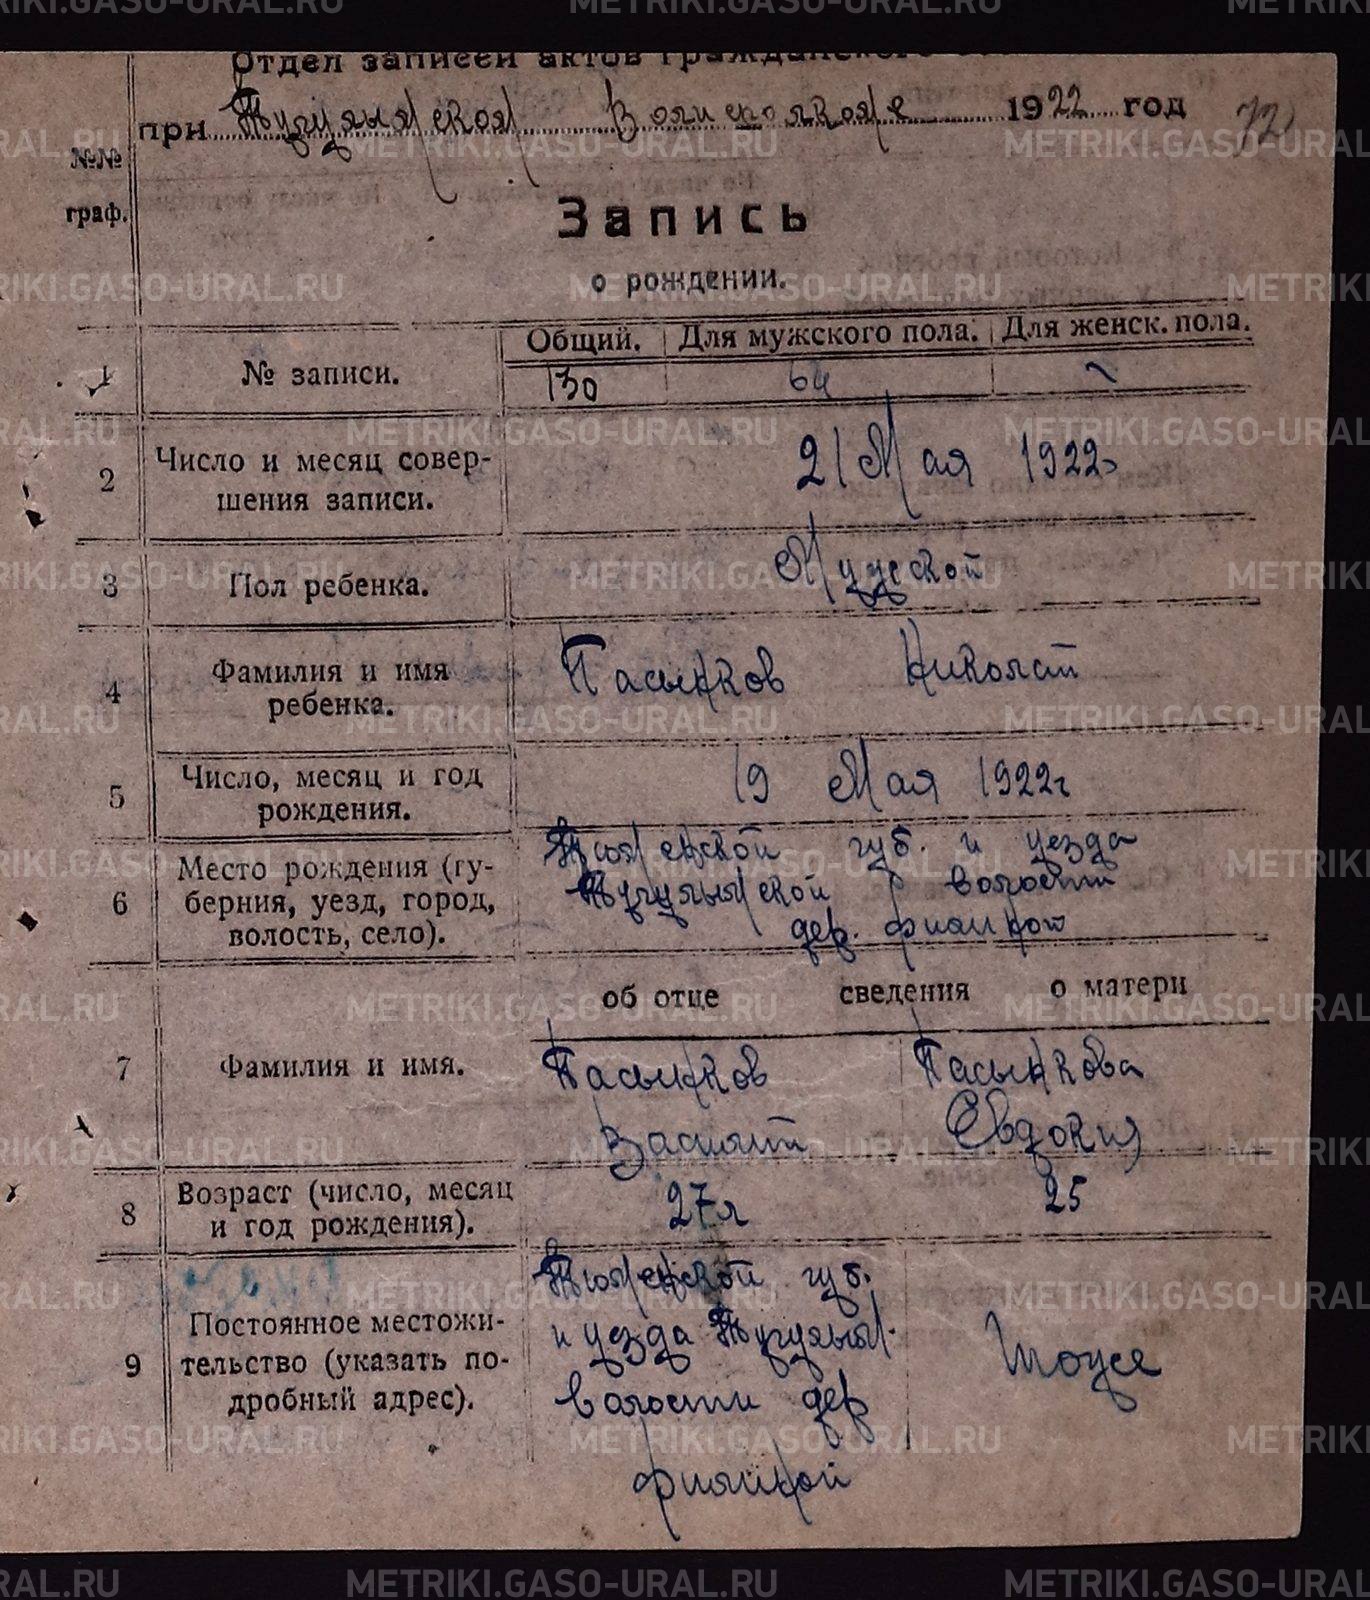 Отдел записей актов гражданского
при Тугулымской Волисполкоме 1922 год
№№ граф.
Запись
о рождении.
Общий. Для мужского пола. Для женск. пола.
1 № записи. 130 64 ~
2 Число и месяц совер-
шения записи.
21 Мая 1922г
3 Пол ребенка. Мужской
4 Фамилия и имя
ребенка.
Пасынков Николай
5 Число, месяц и год
рождения.
19 Мая 1922г
6 Место рождения (гу-
берния, уезд, город,
волость, село).
Тюменской губ. и уезда
Тугулымской волости
дер. Филиной
об отце сведения о матери
7 Фамилия и имя.
Пасынков Пасынкова
Василий Евдокия
8 Возраст (число, месяц
и год рождения).
27 л 25
9 Постоянное местожи-
тельство (указать по-
дробный адрес).
Тюменской губ.
и уезда Тугулым.
волости дер
Филиной
Тоже
METRIKI.GASO-URAL.RU